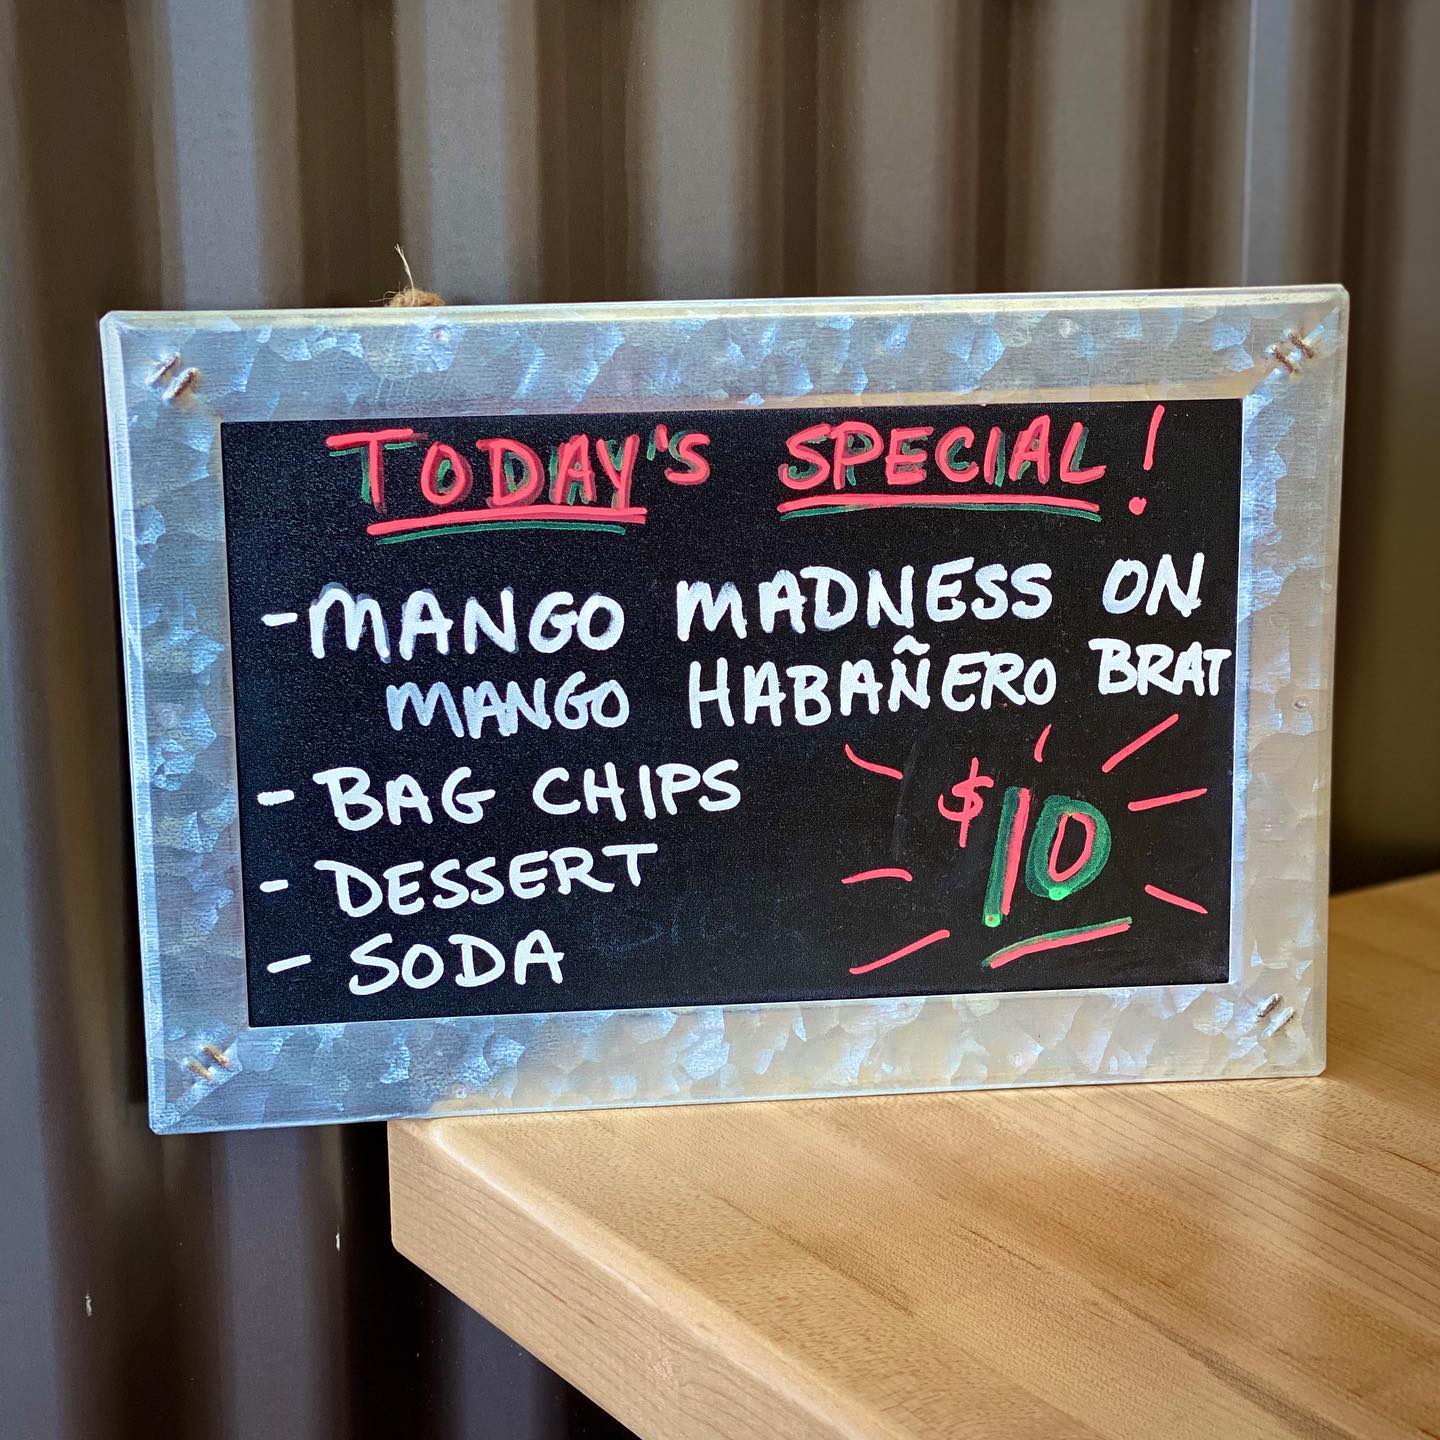 TODAY'S SPECIAL!
- MANGO MADNESS ON
MANGO HABAÑERO BRAT
- BAG CHIPS
- DESSERT
- SODA
$10